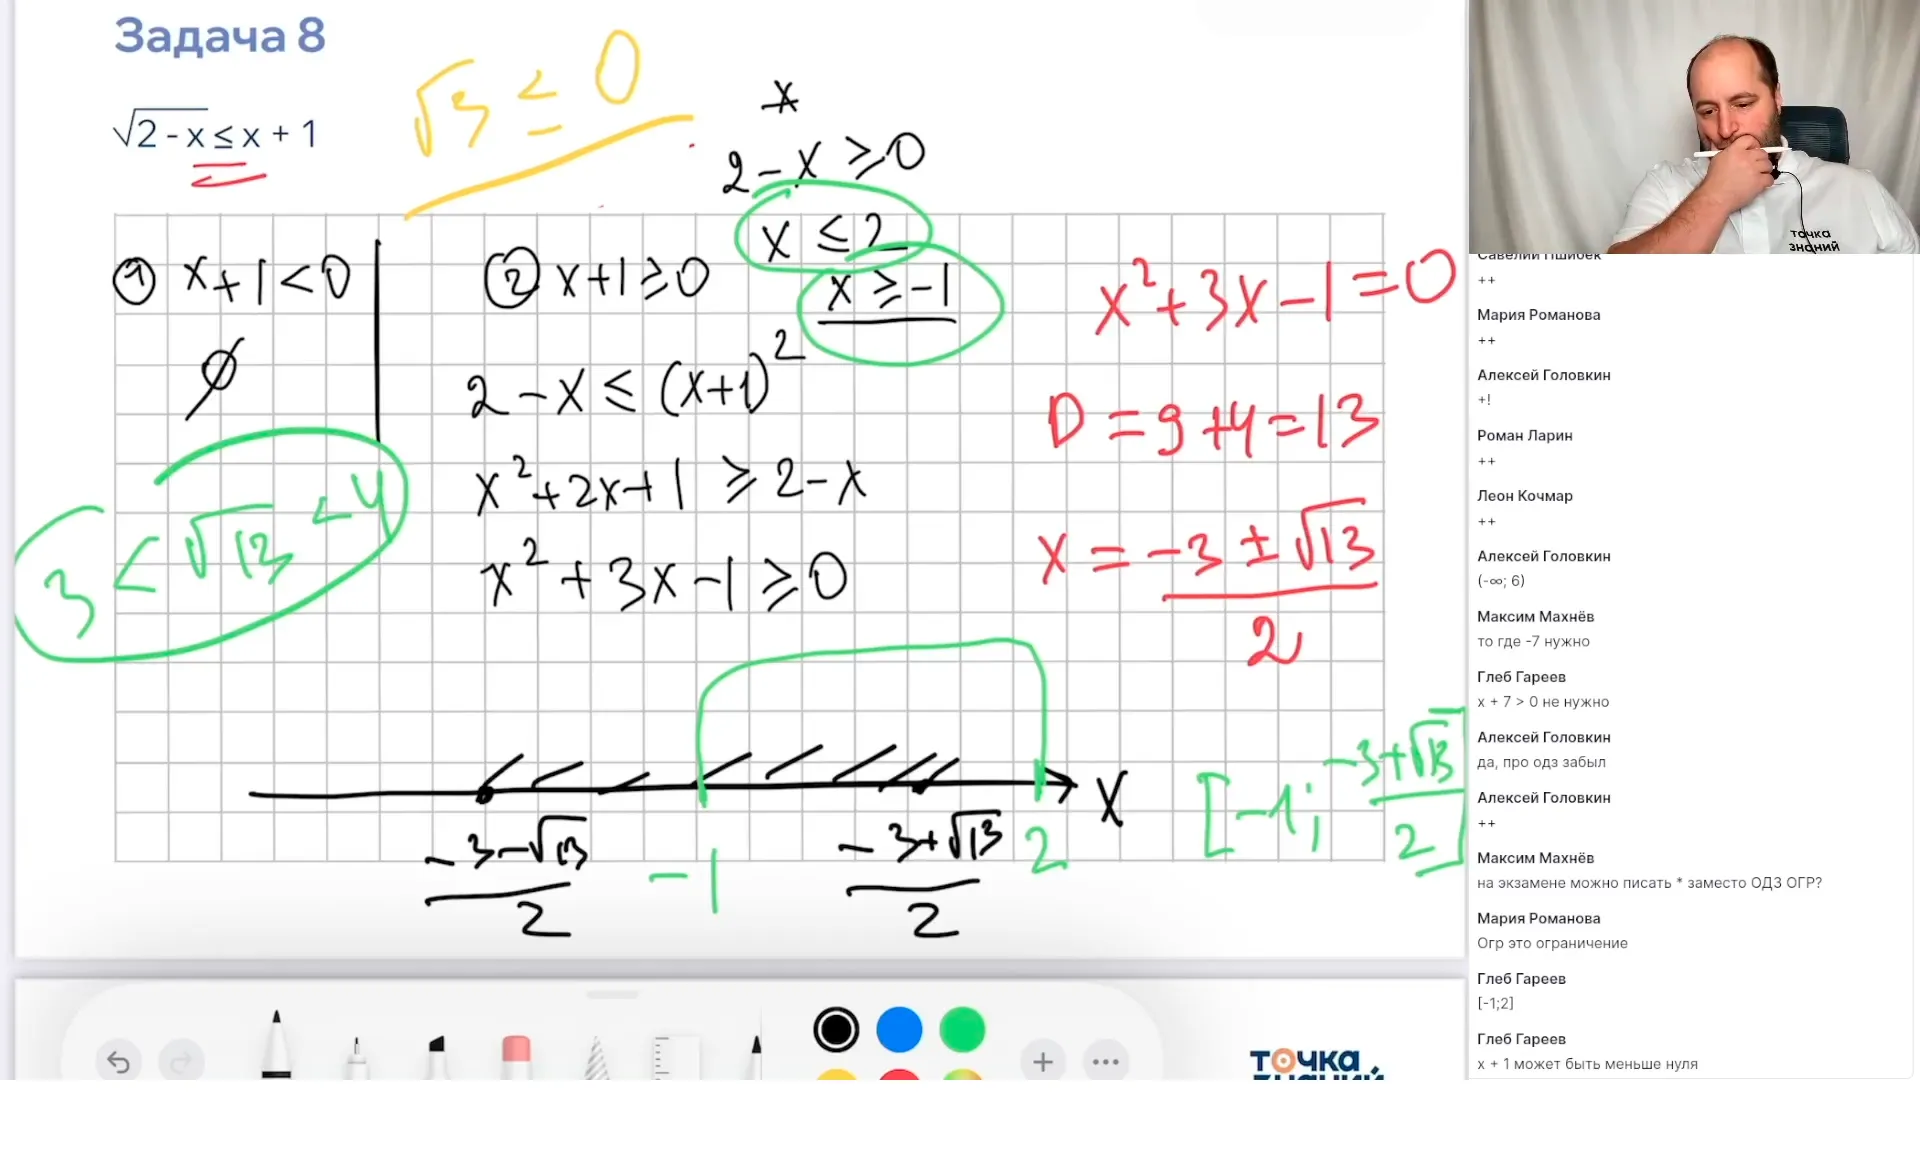 Задача 8
√2 - x ≤ x + 1
√3 ≤ 0
*
2 - x ≥ 0
x ≤ 2
x ≥ -1
① x + 1 < 0
∅
② x + 1 ≥ 0
2 - x ≤ (x+1)²
x² + 2x + 1 ≥ 2 - x
x² + 3x - 1 ≥ 0
3 < √13 < 4
x² + 3x - 1 = 0
D = 9 + 4 = 13
x = -3 ± √13
2
-3-√13
2
-1
-3+√13
2
2
x
[-1; -3+√13
2]
точка
знаний
Савелий Пшибек
++
Мария Романова
++
Алексей Головкин
+!
Роман Ларин
++
Леон Кочмар
++
Алексей Головкин
(-∞; 6)
Максим Махнёв
то где -7 нужно
Глеб Гареев
x + 7 > 0 не нужно
Алексей Головкин
да, про одз забыл
Алексей Головкин
++
Максим Махнёв
на экзамене можно писать * заместо ОДЗ ОГР?
Мария Романова
Огр это ограничение
Глеб Гареев
[-1;2]
Глеб Гареев
x + 1 может быть меньше нуля
точка
знаний